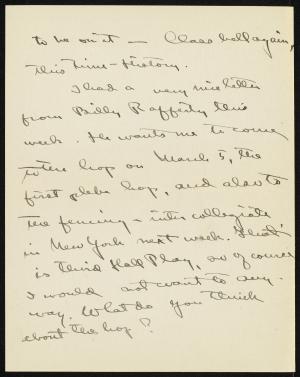 to be on it — Class bell again,
this time – History.
I had a very nice letter
from Billy Rafferty this
week. He wants me to come
to the hop on March 5, the
first plebe hop, and also to
the fencing – inter collegiate
in New York next week. That
is Third Hall Play, so of course
I would not want to any-
way. What do you think
about the hop?